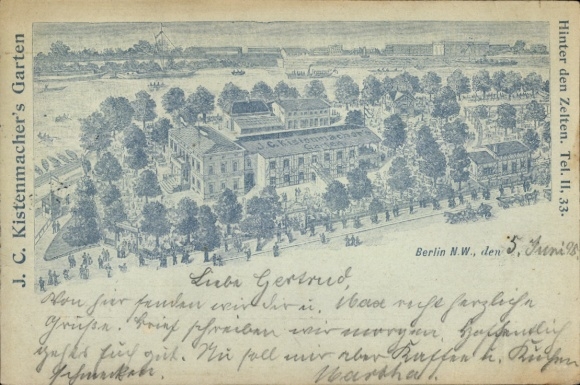 J. C. Kistenmacher's Garten
Hinter den Zelten. Tel. II, 33.
J. C. Kistenmacher
Berlin N.W., den 5. Juni 98.
Liebe Gertrud,
Von hier senden wir dir u. Max recht herzliche
Grüße. Brief schreiben wir morgen. Hoffentlich
geht's Euch gut. Nu soll mir aber Kaffee u. Kuchen
schmecken. Martha.